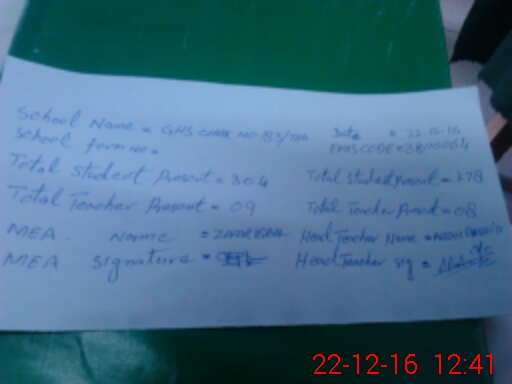 School Name = GHS CHAK NO 183/ Date = 22-12-16
School form no = EMIS CODE =
Total Student Present = 304 Total Student Present = 278
Total Teacher Present = 09 Total Teacher Present = 08
MEA Name = ZAFAR IQBAL Head Teacher Name =
MEA Signature = Head Teacher Sig =
22-12-16 12:41